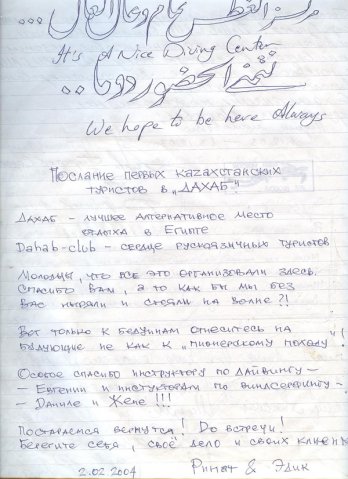 مركز الغطس تمام وعال العال ...
It's A Nice Diving Center
نتمنى الحضور دوما ...
We hope to be here Always
Послание первых казахстанских
туристов в „ДАХАБ"!
Дахаб – лучшее алтернативное место
отдыха в Египте
Dahab-club – сердце рускоязичных туристов
Молодцы, что все это организовали здесь.
Спасибо Вам, а то как бы мы без
Вас ныряли и стояли на волне?!
Вот только к бедуинам отнеситесь на
будующие не как к „пионерскому походу"!
Особое спасибо инструктору по дайвингу –
– Евгении и инстукторам по виндсерфингу –
– Даниле и Жене !!!
Постараемся вернутся! До встречи!
Берегите себя, своё дело и своих клиентов
2.02 2004 Ринат & Эдик